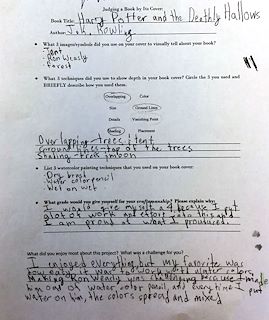 Judging a Book by Its Cover:
Book Title: Harry Potter and the Deathly Hallows
Author: J.K. Rowling
• What 3 images/symbols did you use on your cover to visually tell about your book?
- Tent
- Ron Weasly
- Forest
• What 3 techniques did you use to show depth in your book cover? Circle the 3 you used and
BRIEFLY describe how you used them.
Overlapping Color
Size Ground Lines
Details Vanishing Point
Shading Placement
Overlapping- trees, tent
Ground lines- top of the trees
Shading- tree
• List 3 watercolor painting techniques that you used on your book cover:
- Dry brush
- Water color pencil
- Wet on wet
• What grade would you give yourself for your craftsmanship? Please explain why:
I would give myself because I put
alot of work and effort into this and
I am proud of what I produced.
What did you enjoy most about this project? What was a challenge for you?
I enjoyed everything but my favorite was
how easy it was to work with water colors.
Making Ron Weasly was challenging because I made
him out of water color pencil and every time I put
water on him the colors spread and mixed